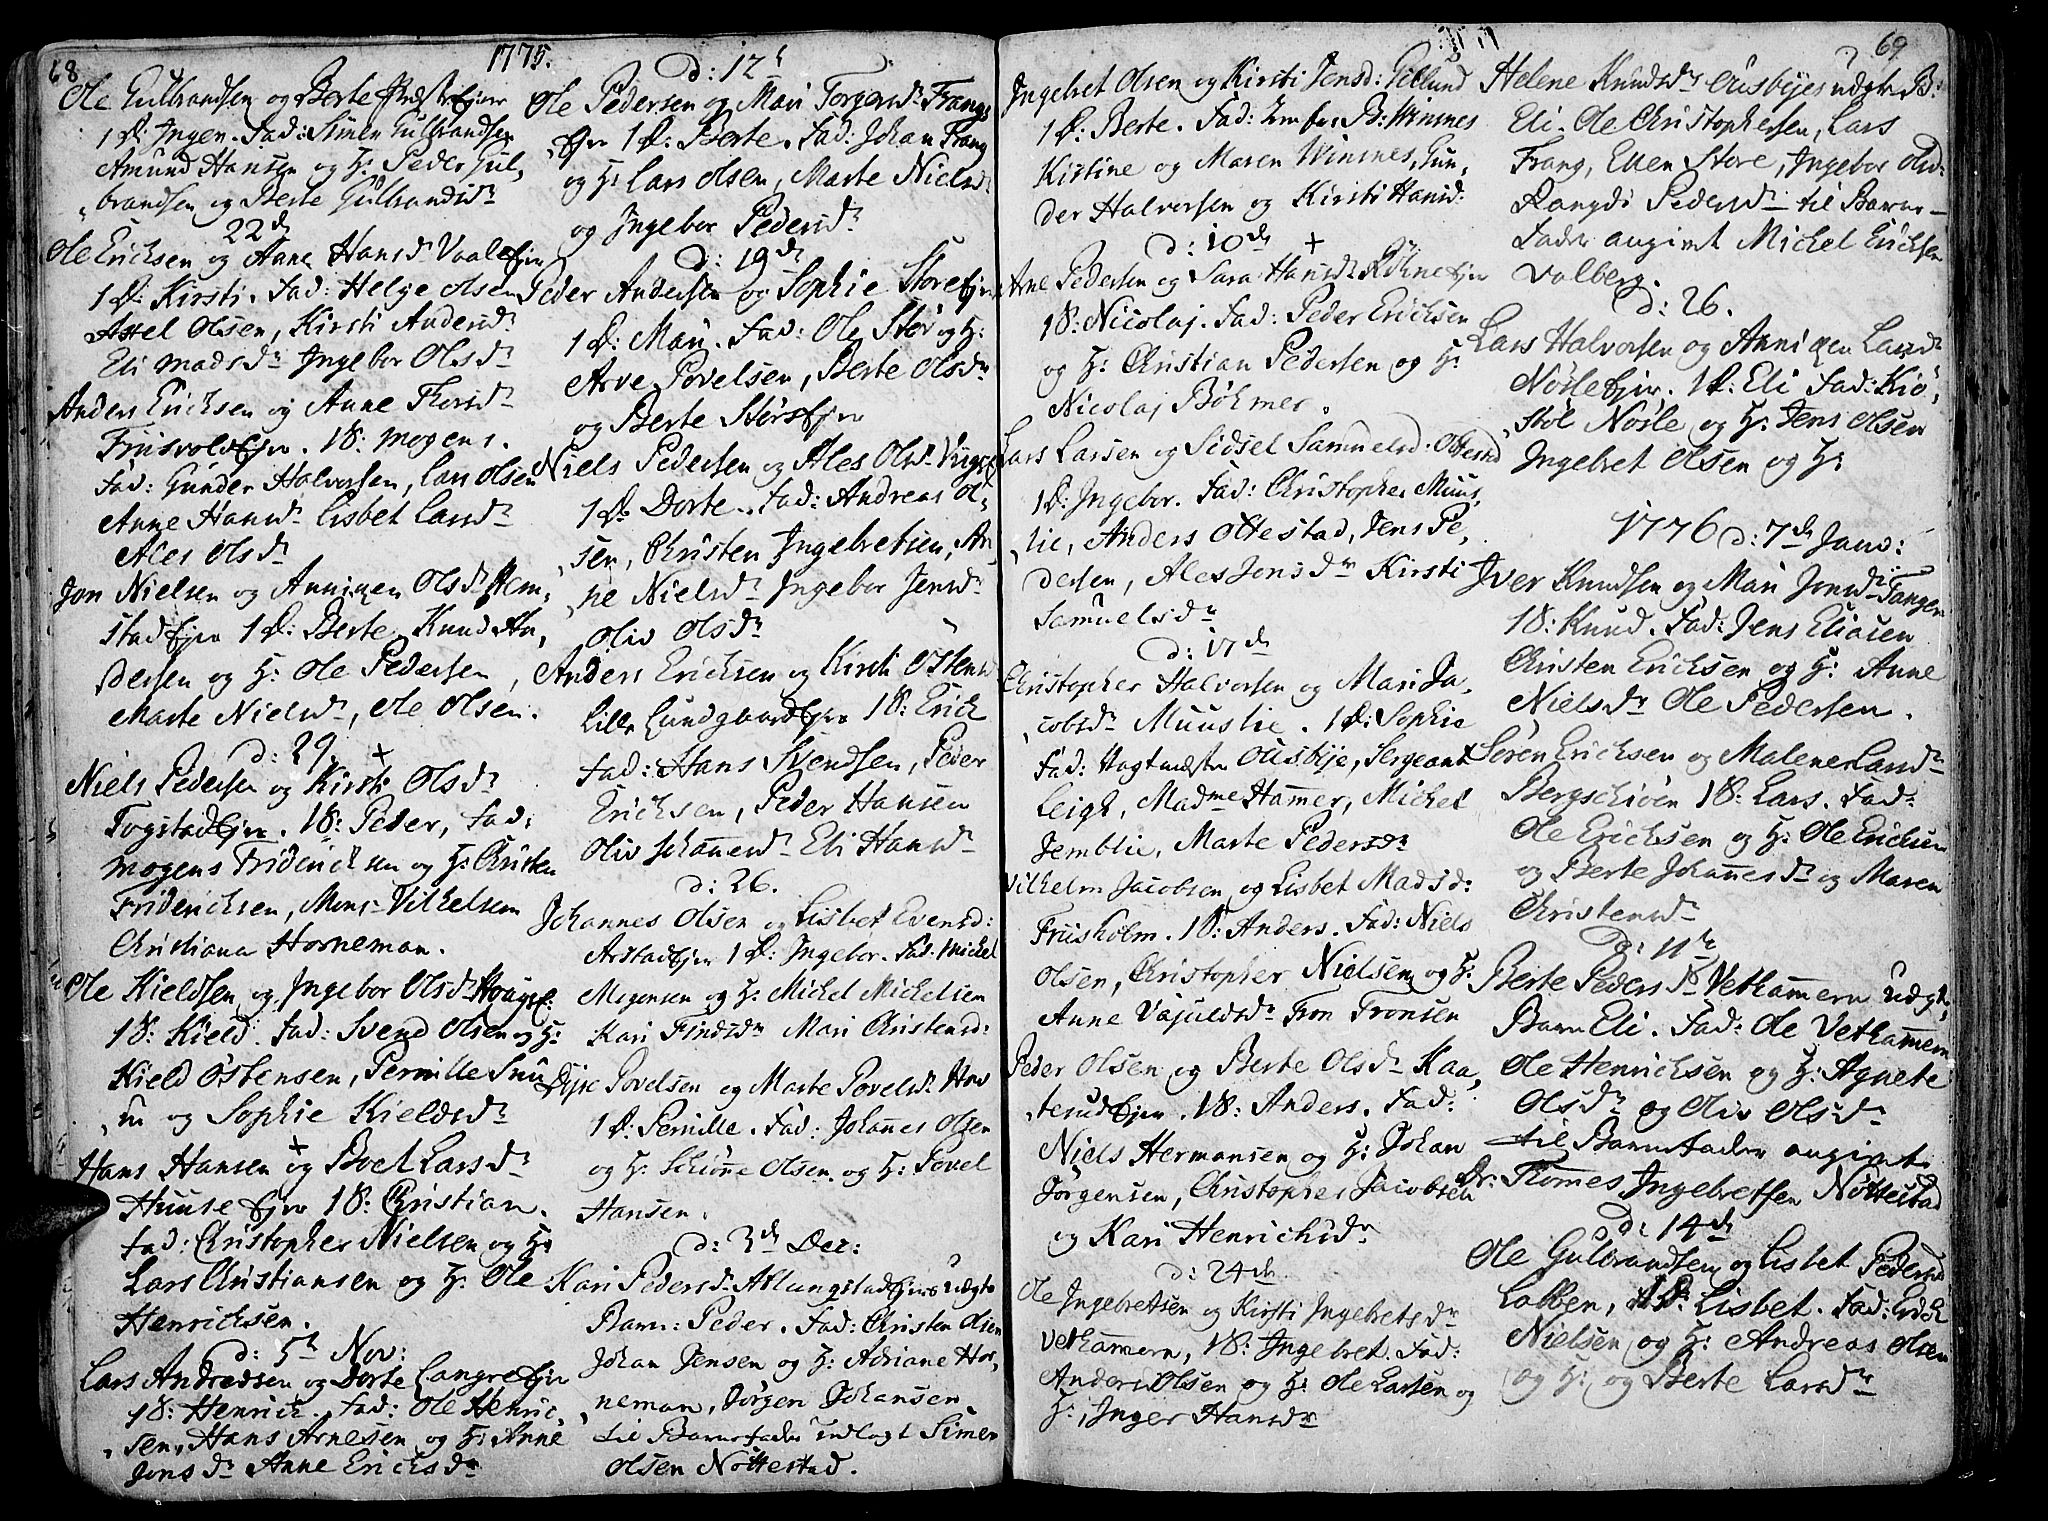 68
1775.
Ole Gulbrandsen og Berte
1 D: Ingen. Fad: Simen Gulbrandsen
Amund Hansen og H: Peder Gul,
brandsen og Berte Gulbrandsdr
22d
Ole Ericksen og Anne Hansdr Vaaleejer
1 D: Kirsti. Fad: Helge Olsen
Axel Olsen, Kirsti Andersdr
Eli Madsdr Ingebor Olsdr
Anders Ericksen og Anne Thorsdr
Friisvoldejer. 1 B: Mogens.
Fad: Gunder Halvorsen, Lars Olsen
Anne Hansdr Lisbet Larsdr
Ales Olsdr
Jon Nielsen og Anniken Olsdr Rem,
stadejer 1 D: Berte. Knud An,
dersen og H: Ole Pedersen,
Marte Nielsdr, Ole Olsen.
d: 29.
Niels Pedersen og Kirsti Olsdr
Togstadejer. 1 B: Peder, Fad:
Mogens Fridericksen og H: Christen
Friderichsen, Mons Vilhelsem
Christiana Horneman.
Ole Kieldsen og Ingebor Olsdr
1 B: Kield. Fad: Svend Olsen og H:
Kield Ostensen, Pernille Snu
,, og Sophie Kieldsdr
Hans Hansen og Boel Larsdr
Huuseejer 1 B: Christian.
Fad: Christopher Nielsen og H:
Lars Christiansen og H: Ole
Henricksen.
d: 5th Nov:
Lars Andredsen og Dorte Langreejer
1 B: Henrick. Fad: Ole Henric,
sen, Hans Arnesen og H: Anne
Jonsdr Anne Ericksdr
d: 12t
Ole Pedersen og Mari Torgersdr Frangs
ejer 1 D: Berte. Fad: Johan Frang
og H: Lars Olsen, Marte Nielsdr
og Ingebor Pedersdr
d: 19de
Peder Andersen og Sophie Storeejer
1 D: Mari. Fad: Ole Stor og H:
Arve Povelsen, Berte Olsdr
og Berte Storsejer
Niels Pedersen og Ales Olsdr
1 D: Dorte. Fad: Andreas Ol,
sen, Christen Ingebretsen, An,
ne Nielsdr Ingebor Jensdr
Oliv Olsdr
Anders Ericksen og Kirsti Ostensd
Lille Lundgaardejer 1 B: Erick
Fad: Hans Svendsen, Peder
Ericksen, Peder Hansen
Oliv Johannesdr Eli Hansdr
d: 26.
Johannes Olsen og Lisbet Evensd:
Arstadejer 1 D: Ingebor. Fad: Mickel
Mogensen og H: Mickel Mickelsen
Kari Findsdr Mari Christensd:
Povelsen og Marte Povelsdr Hov
1 D: Pernille. Fad: Johannes Olsen
og H: Schiönne Olsen og H: Povel
Hansen.
d: 3de Dec:
Kari Pedersdr Atlungstadejers uægte
Barn: Peder. Fad: Christen Olsen
Johan Jensen og H: Adriane Hor,
neman, Jörgen Johansen.
til Barnefader indlagt Simen
Olsen Nöttestad.
69
Ingebret Olsen og Kirsti Jensd: Gillund
1 D: Berte. Fad: B: Winsnes
Kistine og Maren Winsnes, Gun,
der Halvorsen og Kirsti Hansd:
d: 10de
Arne Pedersen og Sara Hansdr Röhneejer
1 B: Nicolaj. Fad: Peder Ericksen
og H: Christian Pedersen og H:
Nicolaj Böhmer.
Lars Larsen og Sidsel Samuelsd: Ottestad
1 D: Ingebor. Fad: Christopher Muus,
lie, Anders Ottestad, Jens Pe,
dersen, Ales Jonsdr Kirsti
Samuelsdr
d: 17de
Christopher Halvorsen og Mari Ja,
cobsdr Muuslie. 1 D: Sophie
Fad: Vagtmester Ousbye, Sergeant
Leigh, Madme Hammer, Mickel
Jemblie, Marte Pedersdr
Vilhelm Jacobsen og Lisbet Madsd:
Friisholm. 1 B: Anders. Fad: Niels
Olsen, Christopher Nielsen og H:
Anne Tron Tronsen
Peder Olsen og Berte Olsdr Kaa,
terudejer. 1 B: Anders. Fad:
Niels Hermansen og H: Johan
Jörgensen, Christopher Jacobsen
og Kari Henricksdr
d: 24de
Ole Ingebretsen og Kirsti Ingebretsdr
Vetkammern, 1 B: Ingebret. Fad:
Anders Olsen og H: Ole Larsen og
H:, Inger Hansdr
Helene Knudsdr Ousbyes uægte B:
Eli. Ole Christophersen, Lars
Frang, Ellen Store, Ingebor Olsd:
Rangdi Pedersdr til Barne-
Fader angivet Mickel Ericksen
Valberg.
d: 26.
Lars Halvorsen og Anniken Larsdr
Nösleejer. 1 D: Eli Fad: Kiö,
stol Nösle og H: Jens Olsen
Ingebret Olsen og H:
1776 d: 7de Janv:
Iver Knudsen og Mari Jonsdr Tangen
1 B: Knud. Fad: Jens Eliasen
Christen Ericksen og H: Anne
Nielsdr Ole Pedersen.
Sören Ericksen og Malene Larsdr
Bergschiöen 1 B: Lars. Fad:
Ole Ericksen og H: Ole Ericksen
og Berte Johannesdr og Maren
Christensdr
D: 11te
Berte Pedersdr Vetkammern uægte
Barn Eli. Fad: Ole Vetkammern
Ole Henricksen og H: Agnete
Olsdr og Oliv Olsdr
til Barnefader angivet
Dr: Thomes Ingebretsen Nöttestad
d: 14de
Ole Gulbrandsen og Lisbet Pedersd
Labben, 1 D: Lisbet. Fad: Erick
Nielsen og H: Andreas Olsen
og H: og Berte Larsdr